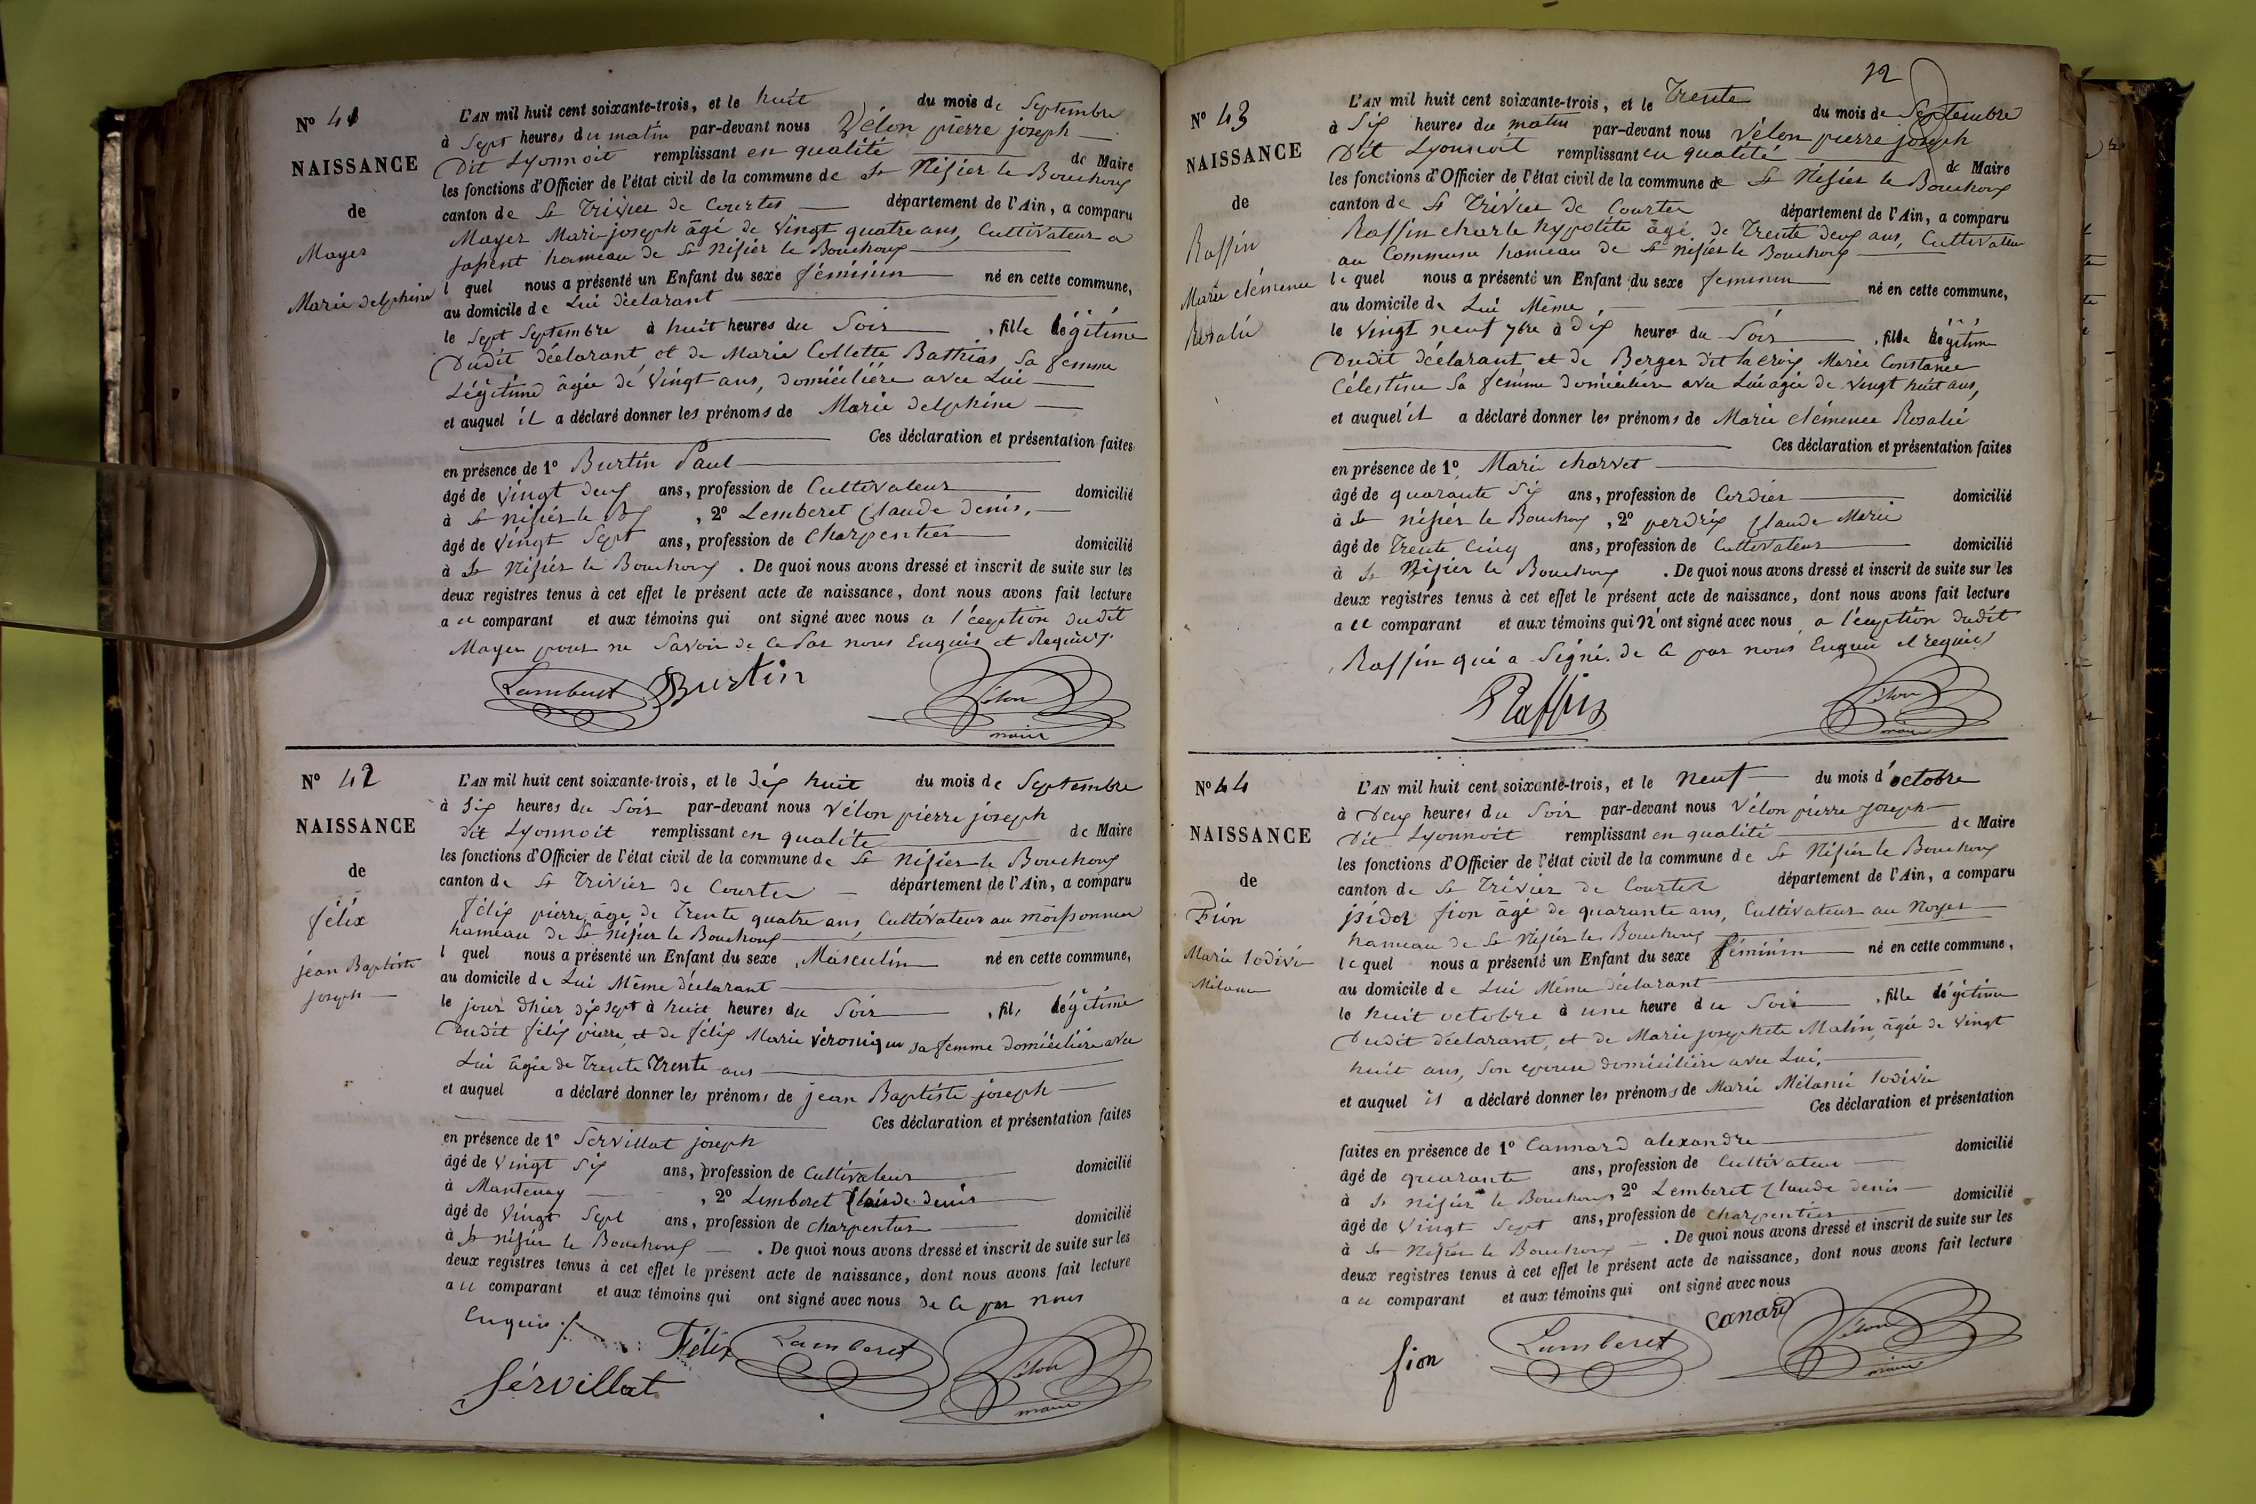 N° 41
NAISSANCE
de
Mayer
Marie delphine
L'AN mil huit cent soixante-trois, et le huit du mois de Septembre
à Sept heures du matin par-devant nous Vélon pierre joseph
Dit Lyonnoit remplissant en qualité de Maire
les fonctions d'Officier de l'état civil de la commune de St Nisier le Bouchoux
canton de St Trivier de Courtes département de l'Ain, a comparu
Mayer Marie joseph âgé de Vingt quatre ans, Cultivateur a
hameau de St Nisier le Bouchoux
l quel nous a présenté un Enfant du sexe féminin né en cette commune,
au domicile de Lui déclarant
le Sept Septembre à huit heures du Soir , fille légitime
Dudit déclarant et de Marie Collette Bathias Sa femme
Légitime âgée de Vingt ans, domiciliére avec Lui
et auquel il a déclaré donner les prénoms de Marie delphine
Ces déclaration et présentation faites
en présence de 1° Burtin Paul
âgé de Vingt deux ans, profession de Cultivateur domicilié
à St nisier le Bx , 2° Lemberet Claude denis,
âgé de Vingt Sept ans, profession de Charpentier domicilié
à St Nisier le Bouchoux . De quoi nous avons dressé et inscrit de suite sur les
deux registres tenus à cet effet le présent acte de naissance, dont nous avons fait lecture
au comparant et aux témoins qui ont signé avec nous a l'éception dudit
Mayer pour ne Savoir de Ce par nous Enquis et Requis
Lamberet Burtin Vélon
maire
N° 42
NAISSANCE
de
félix
jean Baptiste
joseph
L'AN mil huit cent soixante-trois, et le dix huit du mois de Septembre
à Six heures du Soir par-devant nous Vélon pierre joseph
dit Lyonnoit remplissant en qualité de Maire
les fonctions d'Officier de l'état civil de la commune de St Nisier le Bouchoux
canton de St Trivier de Courtes département de l'Ain, a comparu
félix pierre, âgé de Trente quatre ans, Cultivateur au moissonnier
hameau de St nisier le Bouchoux
l quel nous a présenté un Enfant du sexe Masculin né en cette commune,
au domicile de Lui Même déclarant
le jour d'hier dix sept à huit heures du Soir , fils légitime
Dudit félix pierre, et de félix Marie véronique sa femme domiciliére avec
Lui âgée de Trente Trente ans
et auquel a déclaré donner les prénoms de jean Baptiste joseph
Ces déclaration et présentation faites
en présence de 1° Servillat joseph
âgé de Vingt Six ans, profession de Cultivateur domicilié
à Mantenay , 2° Lemberet Claude denis
âgé de Vingt Sept ans, profession de charpentier domicilié
à St nisier le Bouchoux . De quoi nous avons dressé et inscrit de suite sur les
deux registres tenus à cet effet le présent acte de naissance, dont nous avons fait lecture
au comparant et aux témoins qui ont signé avec nous de Ce par nous
Enquis
Félix Lamberet Vélon
Sérvillat maire
12
N° 43
NAISSANCE
de
Raffin
Marie clémence
Rosalie
L'AN mil huit cent soixante-trois, et le Trente du mois de Septembre
à Six heures du matin par-devant nous Vélon pierre joseph
Dit Lyonnoit remplissant en qualité de Maire
les fonctions d'Officier de l'état civil de la commune de St Nisier le Bouchoux
canton de St Trivier de Courtes département de l'Ain, a comparu
Raffin charle hypolite âgé de Trente deux ans, Cultivateur
au Commun hameau de St nisier le Bouchoux
lequel nous a présenté un Enfant du sexe feminin né en cette commune,
au domicile de Lui Même
le Vingt neuf 7bre à Dix heures du Soir , fille légitime
Dudit déclarant et de Berger dit lacroix Marie Constance
Célestine Sa femme domiciliére avec Lui agée de vingt huit ans,
et auquel il a déclaré donner les prénoms de Marie clémence Rosalie
Ces déclaration et présentation faites
en présence de 1° Marie charvet
âgé de quarante Six ans, profession de Cordier domicilié
à St nisier le Bouchoux , 2° perdrix Claude Marie
âgé de Trente Cinq ans, profession de Cultivateur domicilié
à St Nisier le Bouchoux . De quoi nous avons dressé et inscrit de suite sur les
deux registres tenus à cet effet le présent acte de naissance, dont nous avons fait lecture
au comparant et aux témoins qui n'ont signé avec nous, a l'éception dudit
Raffin qui a Signé. de Ce par nous Enquis et requis
Raffin Vélon
maire
N° 44
NAISSANCE
de
Fion
Marie lodivie
Mélanie
L'AN mil huit cent soixante-trois, et le neuf du mois d'octobre
à Deux heures du Soir par-devant nous Vélon pierre joseph
Dit Lyonnoit remplissant en qualité de Maire
les fonctions d'Officier de l'état civil de la commune de St Nisier le Bouchoux
canton de St Trivier de Courtes département de l'Ain, a comparu
isidor fion âgé de quarante ans, Cultivateur au Noyer
hameau de St Nisier les Bouchoux
lequel nous a présenté un Enfant du sexe féminin né en cette commune,
au domicile de Lui Même déclarant
le huit octobre à une heure du Soir , fille légitime
Dudit déclarant, et de Marie josephete Matin, âgée de Vingt
huit ans, Son epouse domiciliére avec Lui,
et auquel il a déclaré donner les prénoms de Marie Mélanie lodivie
Ces déclaration et présentation
faites en présence de 1° Cannard alexandre domicilié
âgé de quarante ans, profession de Cultivateur
à St Nisier le Bouchoux, 2° Lemberet Claude denis domicilié
âgé de Vingt Sept ans, profession de charpentier
à St Nisier le Bouchoux . De quoi nous avons dressé et inscrit de suite sur les
deux registres tenus à cet effet le présent acte de naissance, dont nous avons fait lecture
au comparant et aux témoins qui ont signé avec nous
fion Lamberet canard Vélon
maire